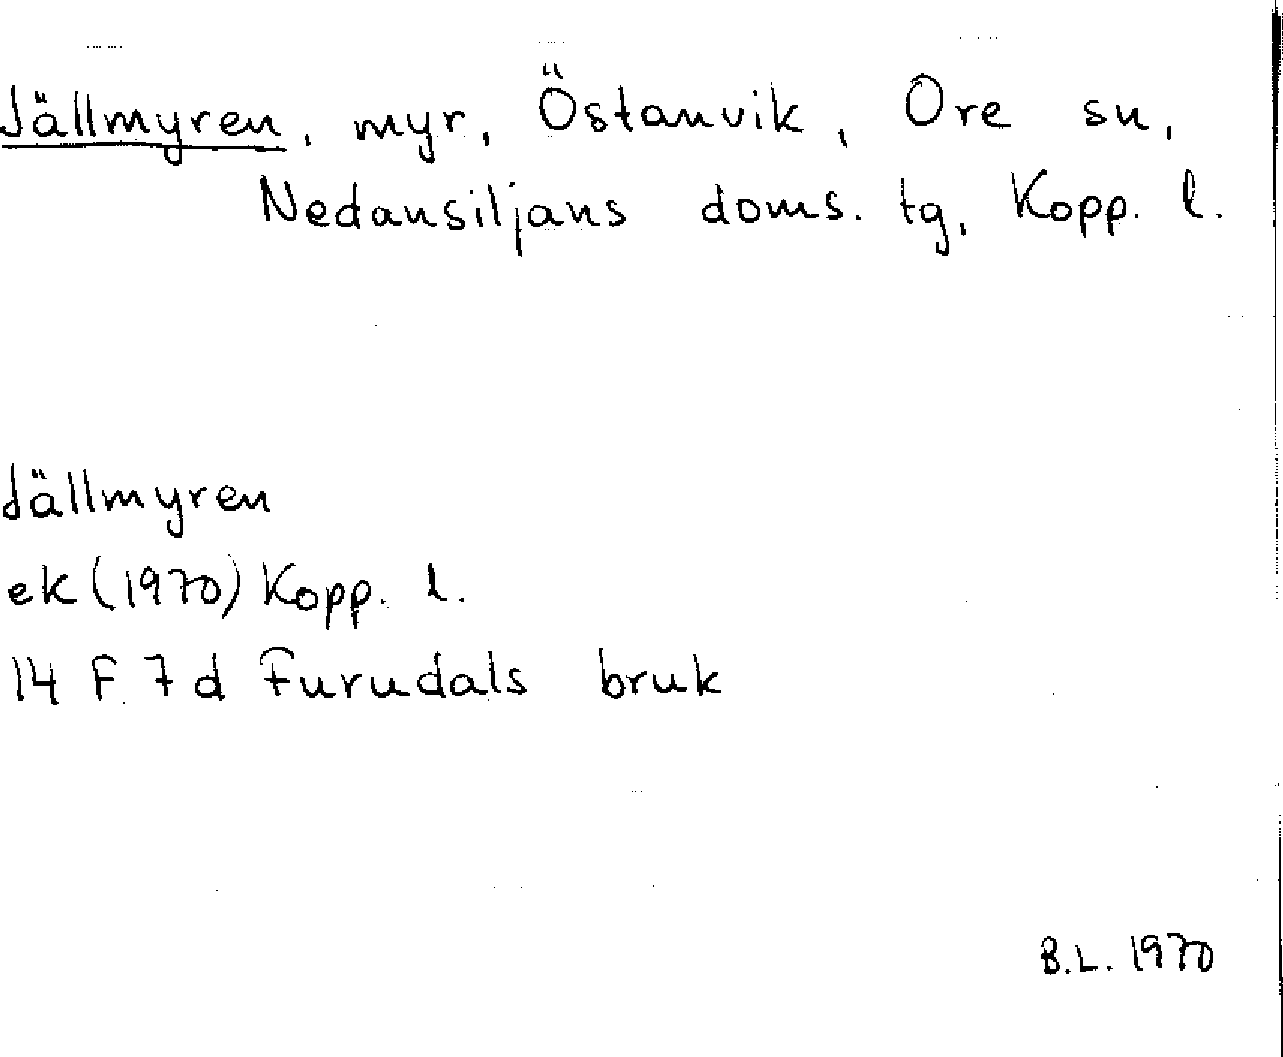 Jällmyren, myr, Östanvik, Ore sn,
Nedansiljans doms. tg, Kopp. l.
Jällmyren
ek (1970) Kopp. l.
14 F 7 d Furudals bruk
B.L. 1970